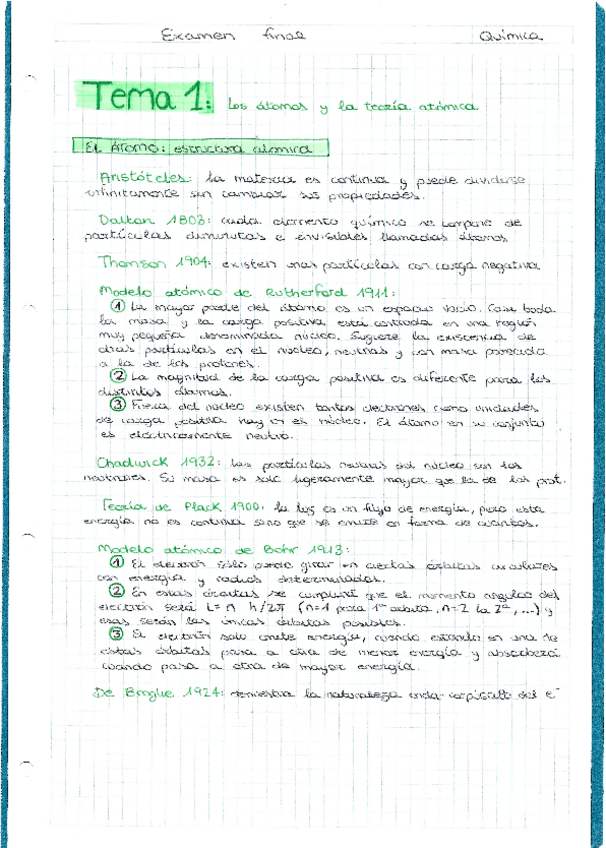 Examen final Química
Tema 1: Los átomos y la teoría atómica
El Átomo: estructura atómica
Aristóteles: la materia es continua y puede dividirse
infinitamente sin cambiar sus propiedades.
Dalton 1803: cada elemento químico se compone de
partículas diminutas e invisibles llamadas átomos
Thomson 1904: existen unas partículas con carga negativa
Modelo atómico de Rutherford 1911:
① La mayor parte del átomo es un espacio vacío. Casi toda
la masa y la carga positiva está centrada en una región
muy pequeña denominada núcleo. Sugiere la existencia de
otras partículas en el núcleo, neutras y con masa parecida
a la de los protones.
② La magnitud de la carga positiva es diferente para los
distintos átomos.
③ Fuera del núcleo existen tantos electrones como unidades
de carga positiva hay en el núcleo. El átomo en su conjunto
es eléctricamente neutro.
Chadwick 1932: Las partículas neutras del núcleo son los
neutrones. Su masa es solo ligeramente mayor que la de los prot.
Teoría de Plack 1900: la luz es un flujo de energía, pero esta
energía no es continua sino que se emite en forma de cuantos.
Modelo atómico de Bohr 1913:
① El electrón sólo puede girar en ciertas órbitas circulares
con energía y radios determinados.
② En estas órbitas se cumplirá que el momento angular del
electrón será L = n h/2π (n=1 para 1ª órbita, n=2 la 2ª, ...) y
esas serán las únicas órbitas posibles.
③ El electrón solo emite energía, cuando estando en una de
estas órbitas pasa a otra de menor energía y absorberá
cuando pasa a otra de mayor energía.
De Broglie 1924: demuestra la naturaleza onda- del e⁻